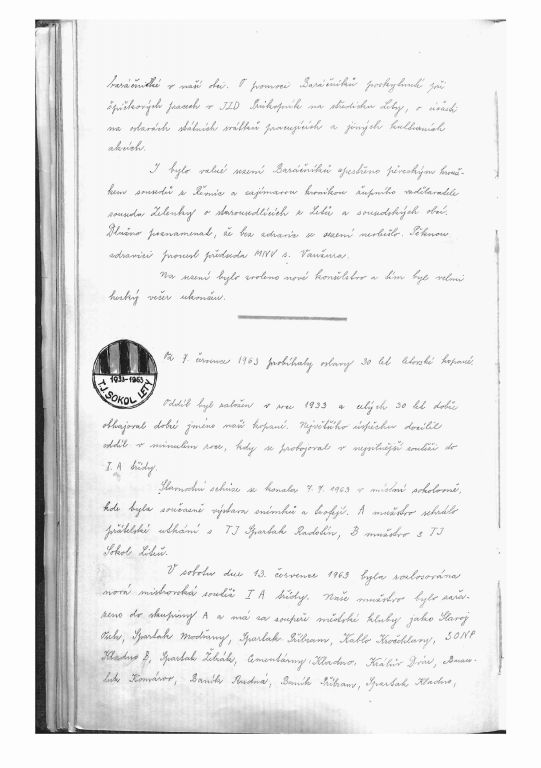 baráčníků v naší obci. O pomoci Baráčníků poskytnuté při
špičkových pracech v JZD Průkopník na středisku Lety, o účasti
na oslavách státních svátků pracujících a jiných kulturních
akcích.
I bylo valné sezení Baráčníků zpestřeno pěveckým krouž-
kem sousedů z Řevnic a zajímavou kronikou župního vzdělavatele
souseda Zelenky o starousedlících z Letů a sousedských obcí.
Dlužno poznamenat, že bez zdravic se sezení neobešlo. Pěknou
zdravici pronesl předseda MNV s. Vančura.
Na sezení bylo zvoleno nové konšelstvo a tím byl velmi
hezký večer ukončen.
1933-1963
TJ SOKOL LETY
Dne 7. července 1963 probíhaly oslavy 30 let letovské kopané.
Oddíl byl založen v roce 1933 a celých 30 let dobře
obhajoval dobré jméno naší kopané. Největšího úspěchu docílil
oddíl v minulém roce, kdy se probojoval v nejvyšší soutěži do
I. A třídy.
Slavnostní schůze se konala 7. 7. 1963 v místní sokolovně,
kde byla současně výstava snímků a trofejí. A mužstvo sehrálo
přátelské utkání s TJ Spartak Radotín, B mužstvo s TJ
Sokol Liteň.
V sobotu dne 13. července 1963 byla rozlosována
nová mistrovská soutěž I A třídy. Naše mužstvo bylo zařa-
zeno do skupiny A a má za soupeře městské kluby jako Slavoj
Spartak Modřany, Spartak Příbram, Kablo Kročehlavy, SONP
Kladno B, Spartak Žebrák, Cementárny Kladno, Králův Dvůr,
Komárov, Baník Rudná, Baník Příbram, Spartak Kladno,